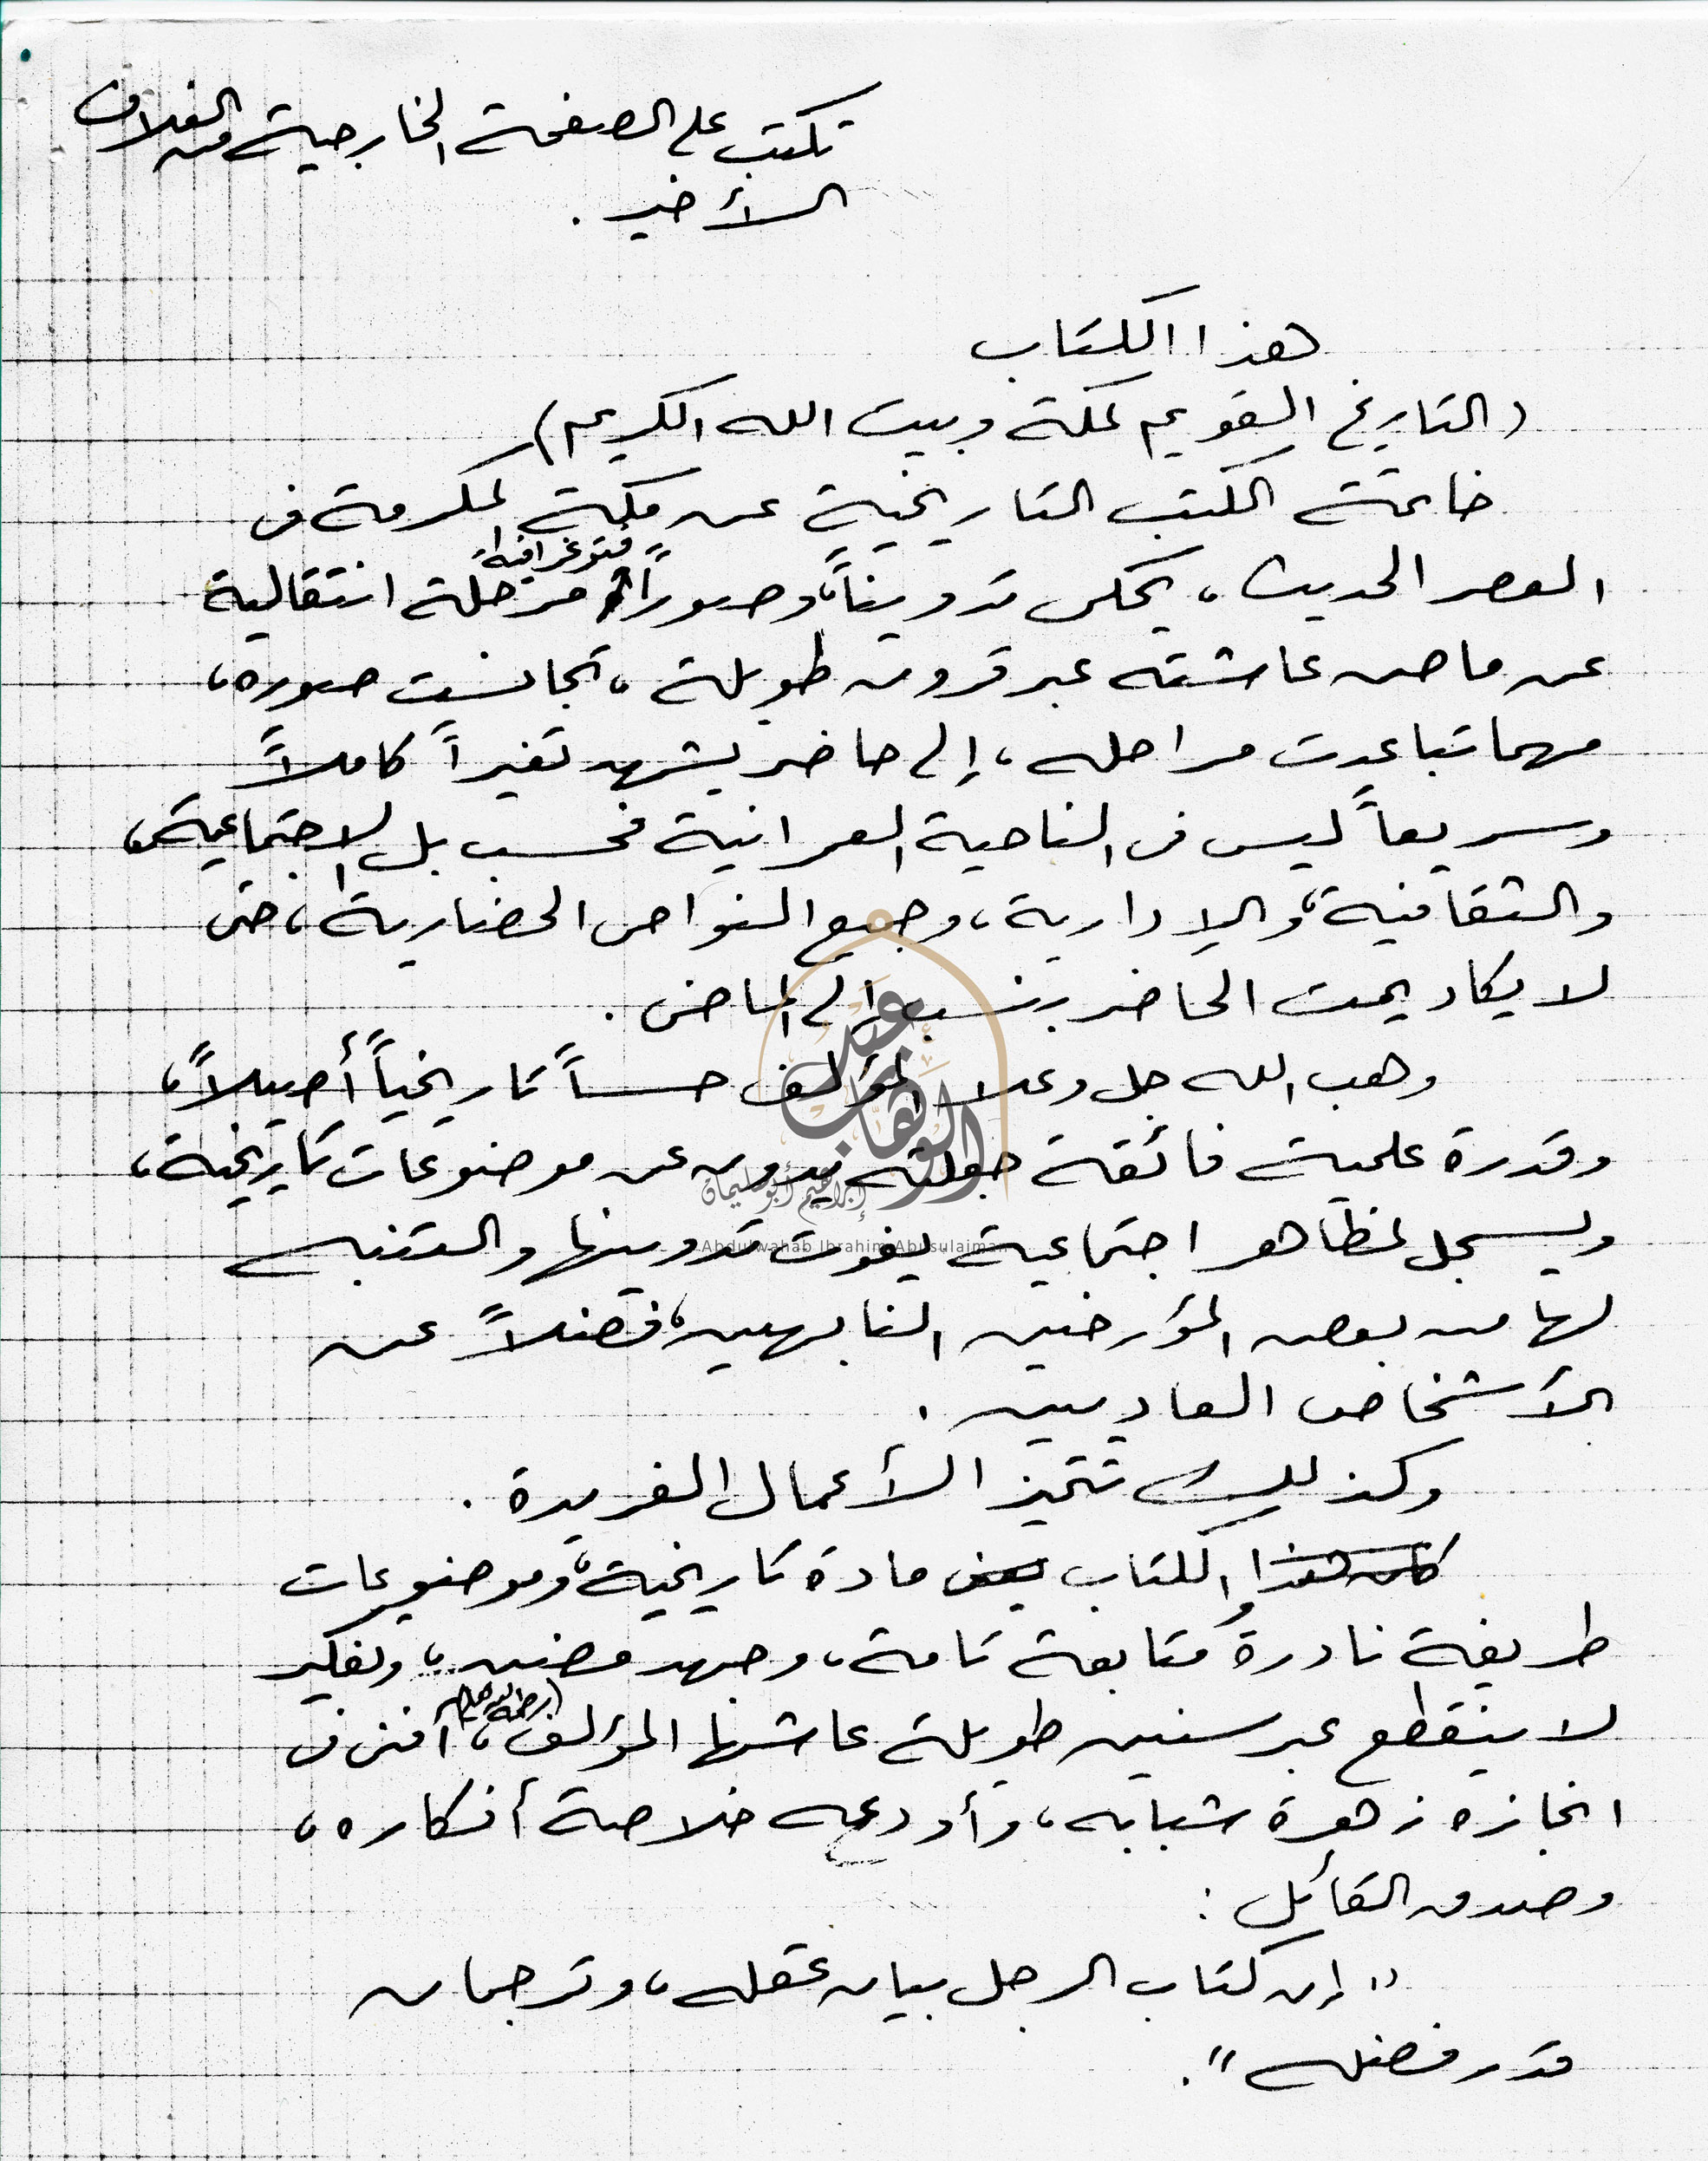 تكتب على الصفحة الخارجية من الغلاف
الأخير .
هذا الكتاب
(التاريخ القويم لمكة وبيت الله الكريم)
خاتمة الكتب التاريخية عن مكة المكرمة في
العصر الحديث، يحكي تدويناً، وصوراً فتوغرافية مرحلة انتقالية
عن ماض عاشته عبر قرون طويلة، تجانست صوره،
مهما تباعدت مراحله، إلى حاضر يشهد تغيراً كاملاً
وسريعاً ليس في الناحية العمرانية فحسب بل الاجتماعية،
والثقافية، والإدارية، وجميع النواحي الحضارية، حتى
لا يكاد يمت الحاضر بنسب إلى الماضي .
وهب الله جل وعلا المؤلف حساً تاريخياً أصيلاً،
وقدرة علمية فائقة جعلته يدون عن موضوعات تاريخية،
ويسجل لمظاهر اجتماعية يفوت تدوينها والتنبه
لها من بعض المؤرخين النابهين، فضلاً عن
الأشخاص العاديين .
وكذلك تتميز الأعمال الفريدة .
الكتاب مادة تاريخية، وموضوعات
طريفة نادرة ومتابعة تامة، وجهد مضن، وتفكير
لا ينقطع عبر سنين طويلة عاشها المؤلف (رحمه الله)، أفنى في
انجازه زهرة شبابه، وأودعه خلاصة أفكاره،
وصدق القائل :
" إن كتاب الرجل بيان عقله، وترجمان
قدر فضله ".
عبد الوهاب
إبراهيم أبو سليمان
Abdulwahab Ibrahim Abusulaiman